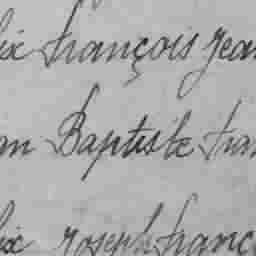 ix françois jean
an Baptiste fran
lix joseph franç